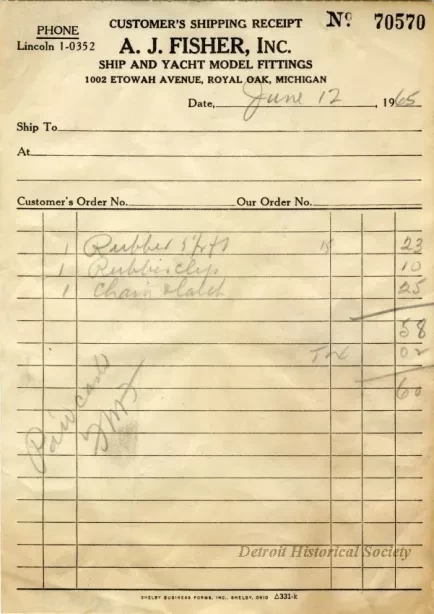 PHONE
Lincoln 1-0352
CUSTOMER'S SHIPPING RECEIPT
Nº 70570
A. J. FISHER, INC.
SHIP AND YACHT MODEL FITTINGS
1002 ETOWAH AVENUE, ROYAL OAK, MICHIGAN
Date, June 12, 1965
Ship To
At
Customer's Order No. Our Order No.
1 Rubber 23
1 10
1 Chain 25
58
Tax 02
60
Paid cash
Detroit Historical Society
SHELBY BUSINESS FORMS, INC., SHELBY, OHIO △331-k